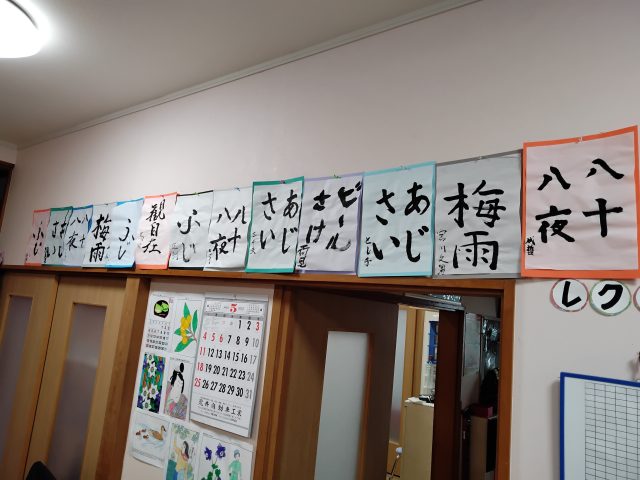 ふじ
あじ
さい
八十
八夜
梅雨
ふじ
観自在
ふじ
八十
八夜
あじ
さい
ビール
さけ
あじ
さい
梅雨
八十
八夜
レク
5
1 2 3
4 5 6 7 8 9 10
11 12 13 14 15 16 17
18 19 20 21 22 23 24
25 26 27 28 29 30 31